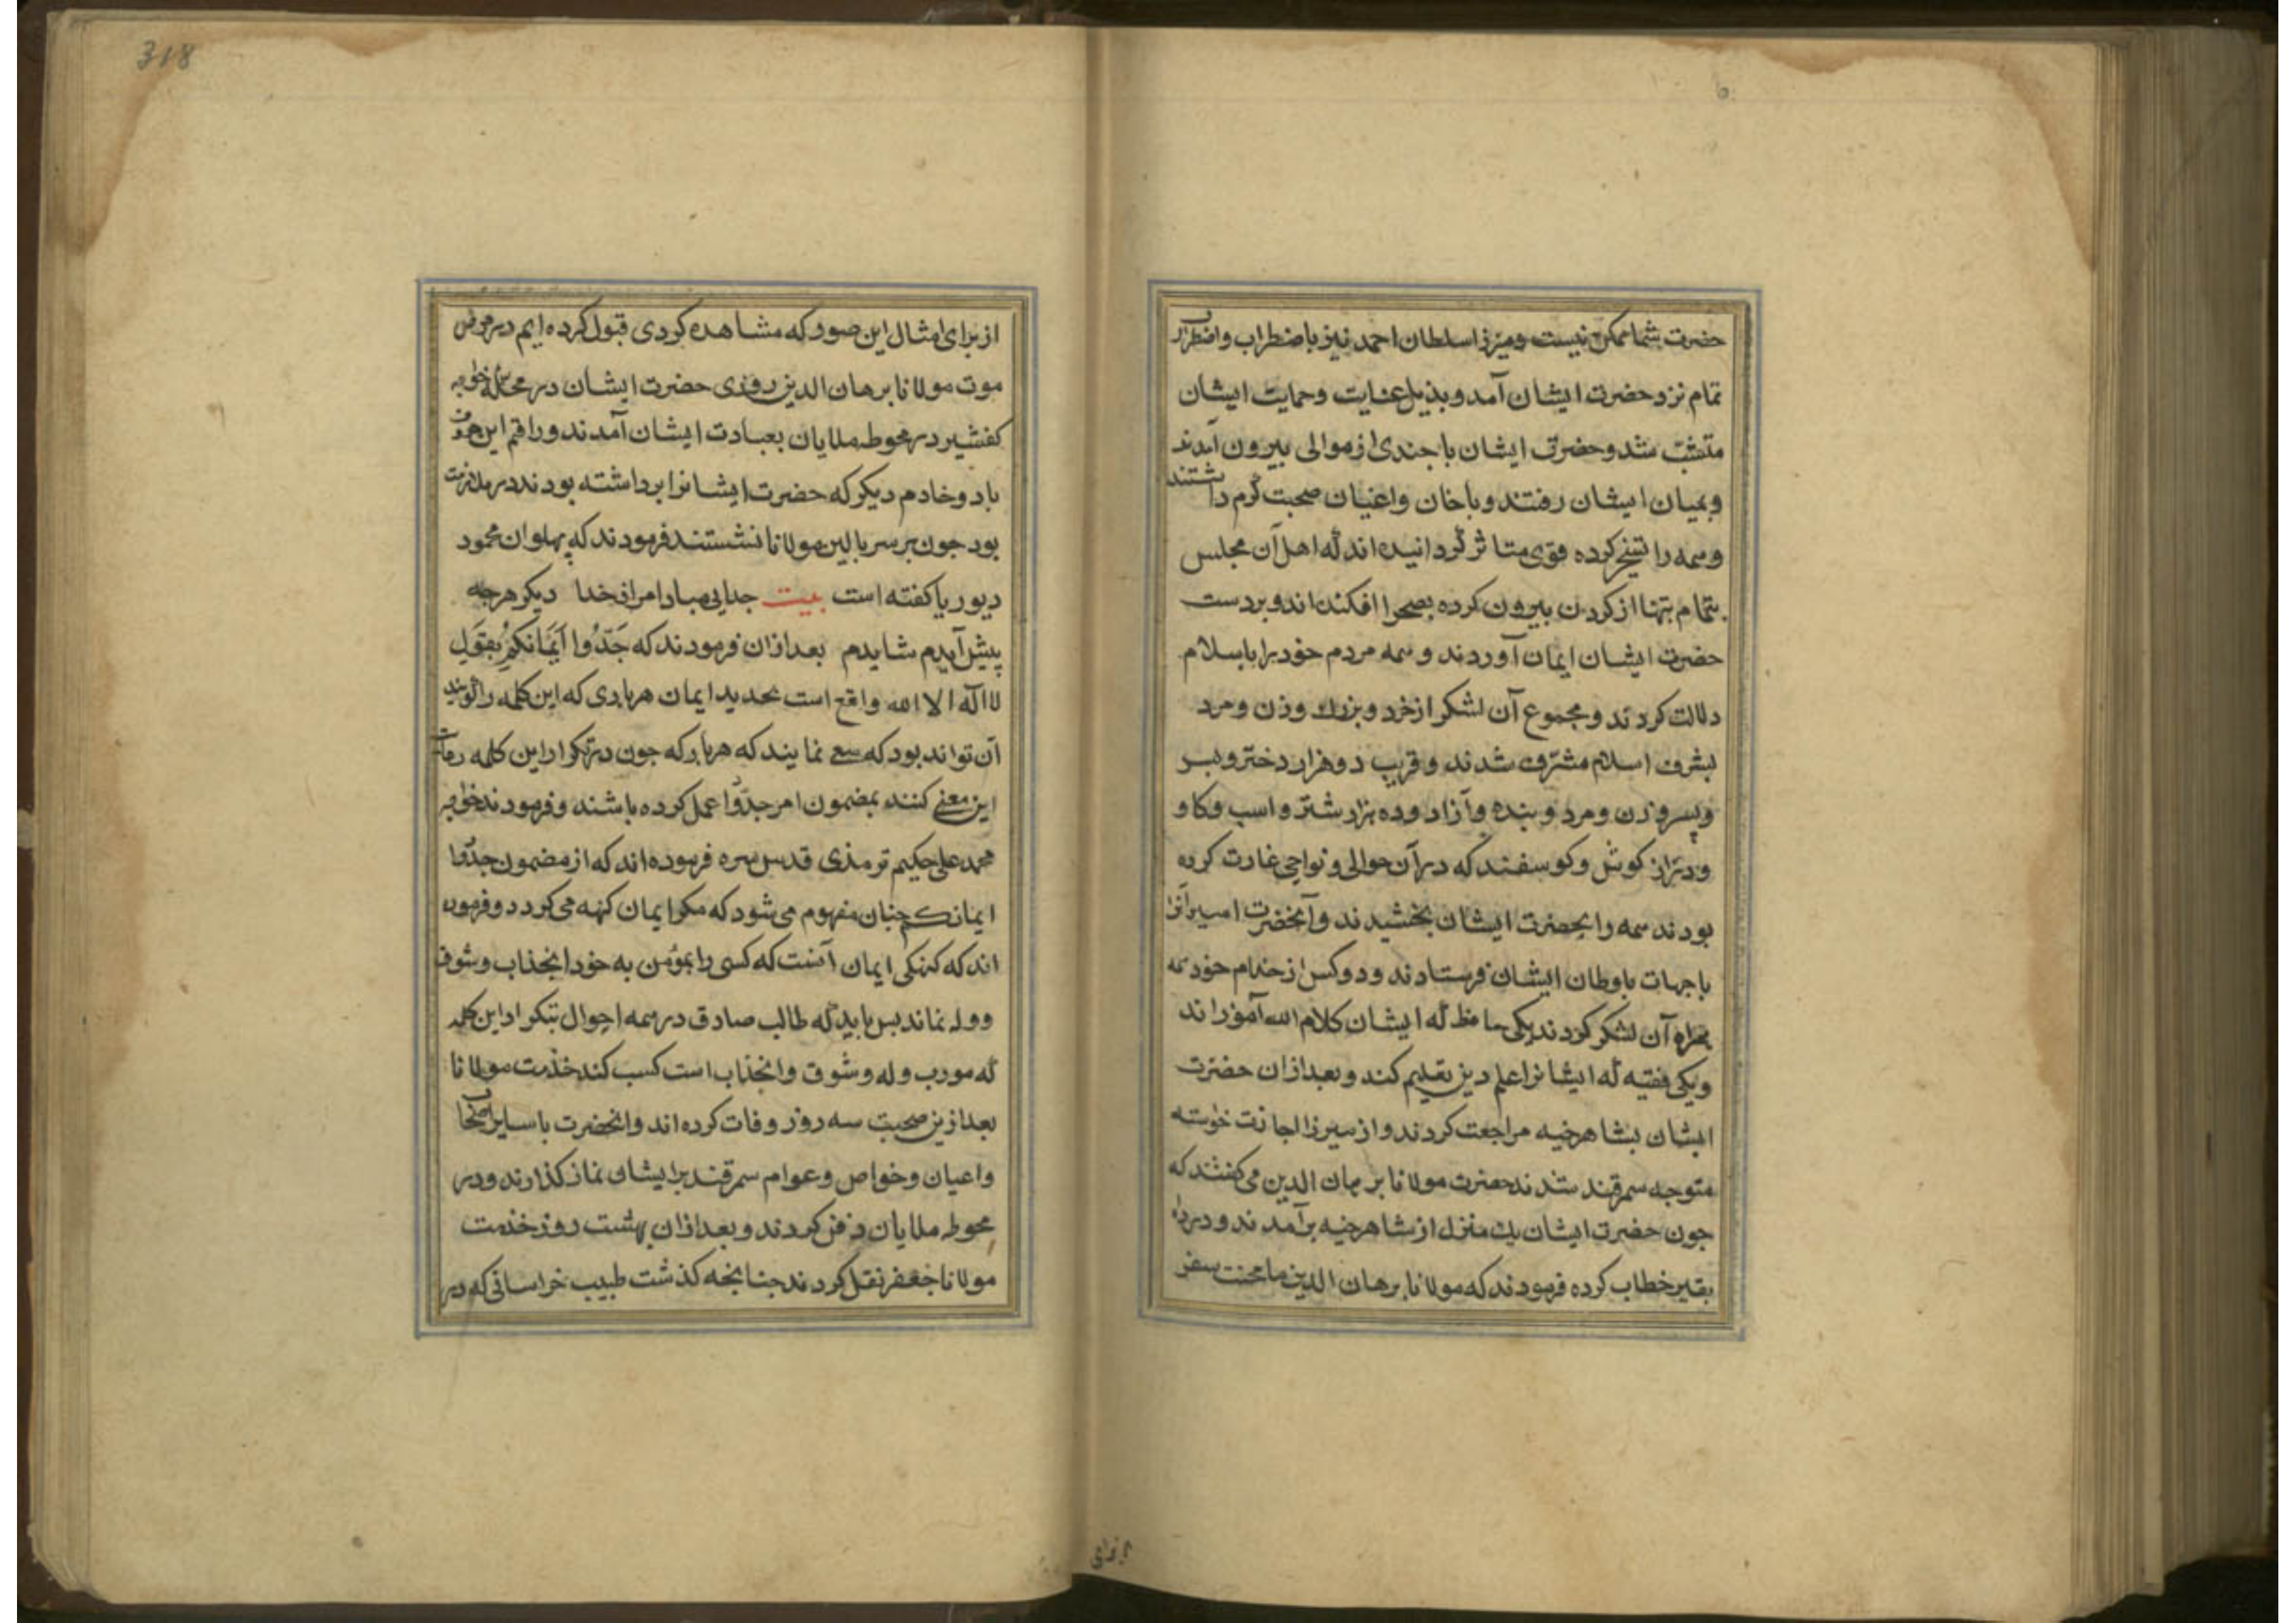 حضرت شما ممکن نیست ومیرزا سلطان احمد نیز باضطراب واضطرار
تمام نزد حضرت ایشان آمد وبذیل عنایت وحمایت ایشان
متشبث شد وحضرت ایشان با جندی از موالی بیرون آمدند
وبمیان ایشان رفتند وباخان واعیان صحبت گرم داشتند
وسمه را تسخیر کرده قوی متاثر گردانیده اند که اهل آن مجلس
بتمام بتها از کردن بیرون کرده بصحرا افکنده اند وبر دست
حضرت ایشان ایمان آوردند وسمه مردم خود را باسلام
دلالت کردند ومجموع آن لشکر از خرد وبزرك وزن ومرد
بشرف اسلام مشرّف شدند وقریب دو هزار دختر وپسر
وپسر وزن ومرد وبنده وآزاد وده بزار شتر واسب وکاو
ودراز کوش وکوسفند که در آن حوالی ونواحی غارت کرده
بودند سمه را بحضرت ایشان بخشیدند وآنحضرت اسیرانرا
باجهات باوطان ایشان فرستادند ودو کس از خدام خود سمه
سمراه آن لشکر کردند یکی حافظ که ایشان کلام الله آموزاند
ویکی فقیه که ایشانرا علم دین تعلیم کند وبعد ازان حضرت
ایشان بشاهرخیه مراجعت کردند واز میرزا اجازت خواسته
متوجه سمرقند شدند حضرت مولانا برهان الدین می کفتند که
جون حضرت ایشان یك منزل از شاهرخیه برآمدند ودر راه
بفقیر خطاب کرده فرمودند که مولانا برهان الدین ما محنت سفر
از برای
318
از برای امثال این صور که مشاهده کردی قبول کرده ایم در مرض
موت مولانا برهان الدین روزی حضرت ایشان در محله خواجه
کفشیر در محوطه ملایان بعیادت ایشان آمدند وراقم این حروف
باد وخادم دیکر که حضرت ایشانرا برداشته بودند در ملازمت
بود جون بر سر بالین مولانا نشستند فرمودند که پهلوان محمود
دیوریا کفته است بیت جدایی مبادا مرا از خدا دیکر هرجه
پیش آیدم شایدم بعد ازان فرمودند که جَدِّدُوا اَیمَانَکُم بِقَولِ
لا اله الا الله واقع است تحدید ایمان هرباری که این کلمه را گویند
آن تواند بود که سعی نمایند که هربار که جون در تکرار این کلمه رعایت
این معنی کنند بمضمون امر جدّدوا عمل کرده باشند وفرمودند خواجه
محمد علی حکیم ترمذی قدس سره فرموده اند که از مضمون جدّدوا
ایمانکم جنان مفهوم می شود که مکر ایمان کهنه می کردد وفرموده
اند که کهنکی ایمان آنست که کسی را بمؤمن به خود انجذاب وشوق
ووله نماند بس باید که طالب صادق در سمه احوال بتکرار این کلمه
که مورب وله وشوق وانجذاب است کسب کند خدمت مولانا
بعد ازین صحبت سه روز وفات کرده اند وانحضرت با سایر اصحاب
واعیان وخواص وعوام سمرقند برایشان نماز کذارند ودر
محوطه ملایان دفن کردند وبعد ازان بهشت روز خدمت
مولانا جعفر نقل کردند جنانجه کذشت طبیب خراسانی که در